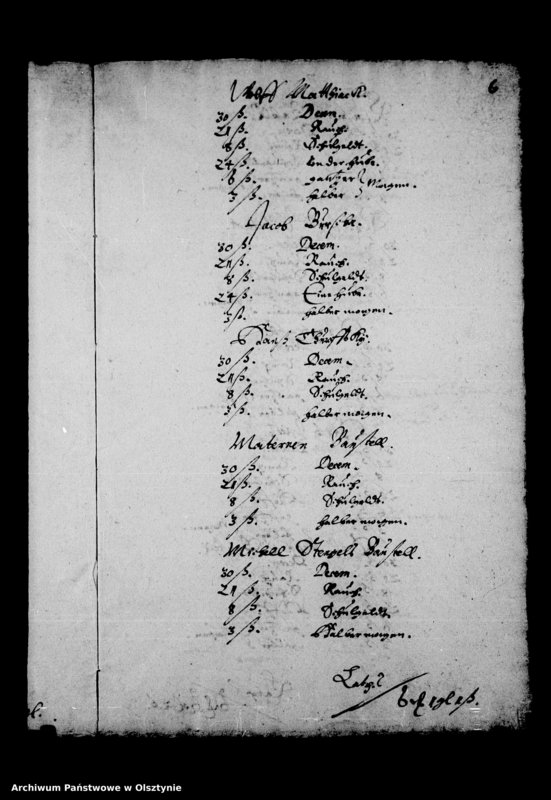 6
Matthiack.
30 ß. Decem.
21 ß. Rauch.
8 ß. Schulgeldt.
24 ß. von der hube.
6 ß. gantzer
3 ß. halber } Morgen.
Jacob
30 ß. Decem.
21 ß. Rauch.
8 ß. Schulgeldt.
24 ß. Eine hube.
3 ß. halber morgen.
Hanß
30 ß. Decem.
21 ß. Rauch.
8 ß. Schulgeldt.
3 ß. halber morgen.
Maternen
30 ß. Decem.
21 ß. Rauch.
8 ß. Schulgeldt.
3 ß. halber morgen.
Michell Stengell
30 ß. Decem.
21 ß. Rauch.
8 ß. Schulgeldt.
3 ß. Halber morgen.
Archiwum Państwowe w Olsztynie